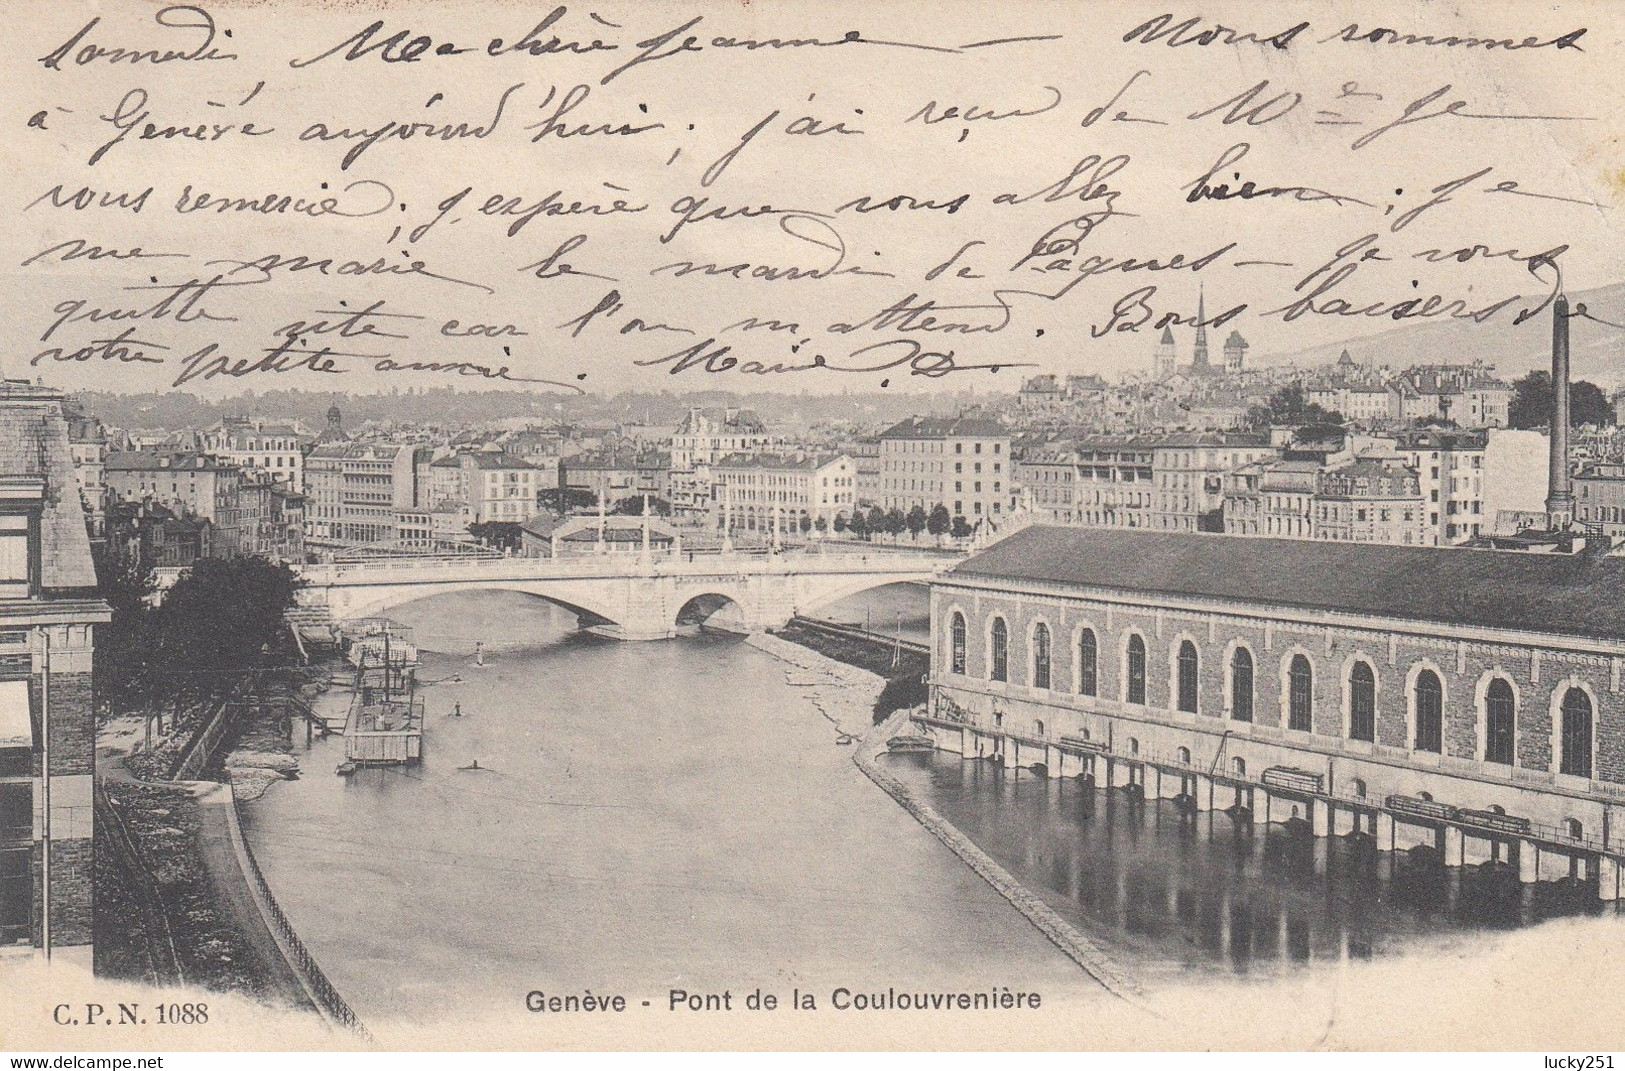 samedi Ma chère Jeanne — Nous sommes
à Genève aujourd'hui; j'ai reçu de Me Je
vous remercie; j'espère que vous allez bien; je
me marie le mardi de Pâques — Je vous
quitte vite car l'on m'attend. Bons baisers de
votre petite amie. Marie. D.
Genève - Pont de la Coulouvrenière
C. P. N. 1088
delcampe.net
lucky251